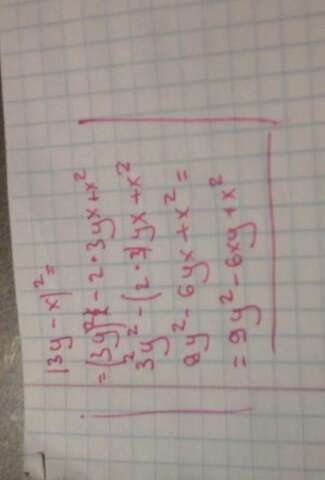 (3y - x)² =
= (3y)² - 2·3yx + x²
3y² - (2·3)yx + x²
9y² - 6yx + x² =
= 9y² - 6xy + x²